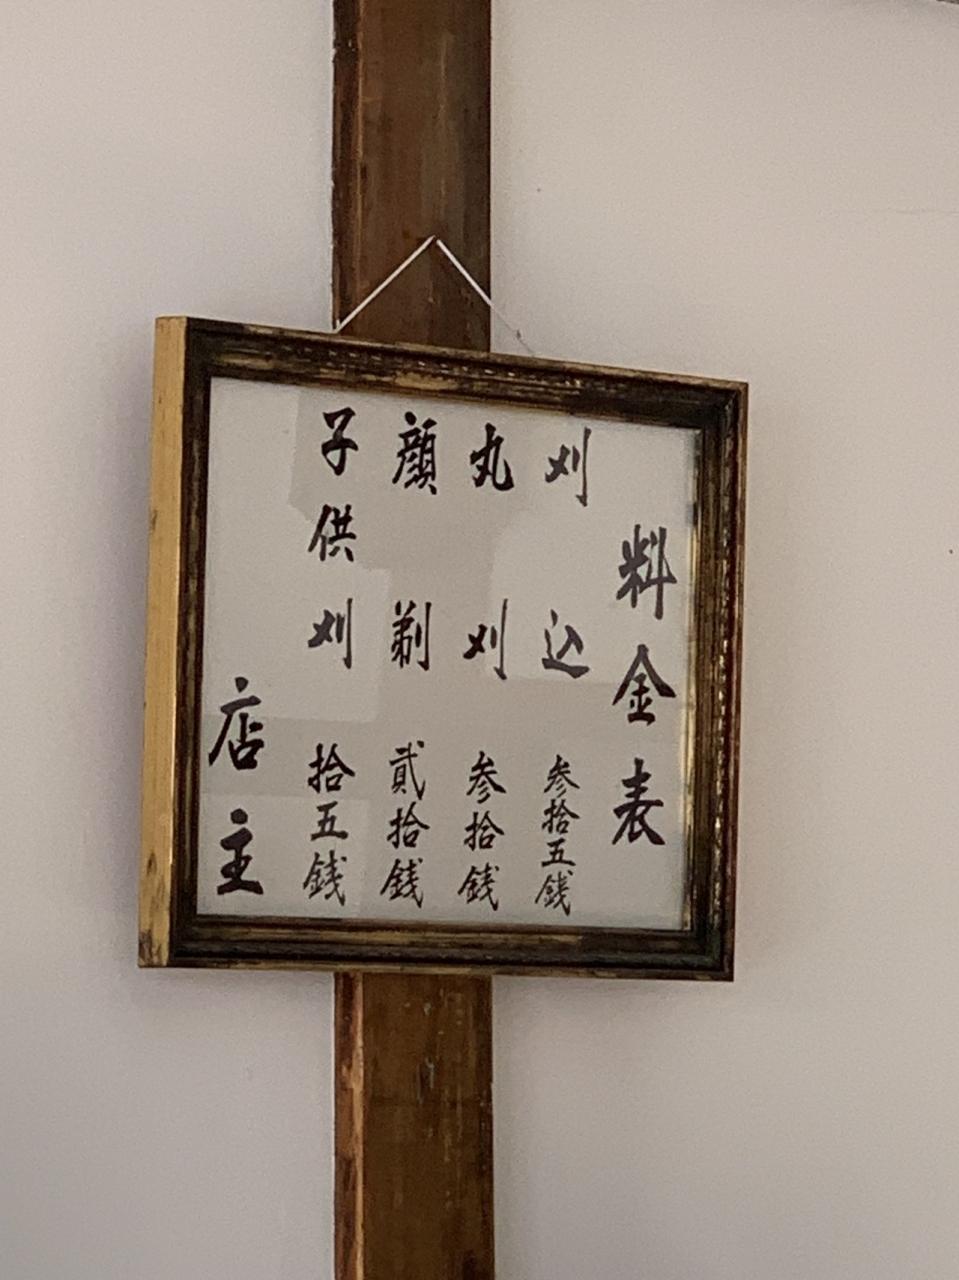 料金表
刈込 参拾五銭
丸刈 参拾銭
顔剃 貳拾銭
子供刈 拾五銭
店主